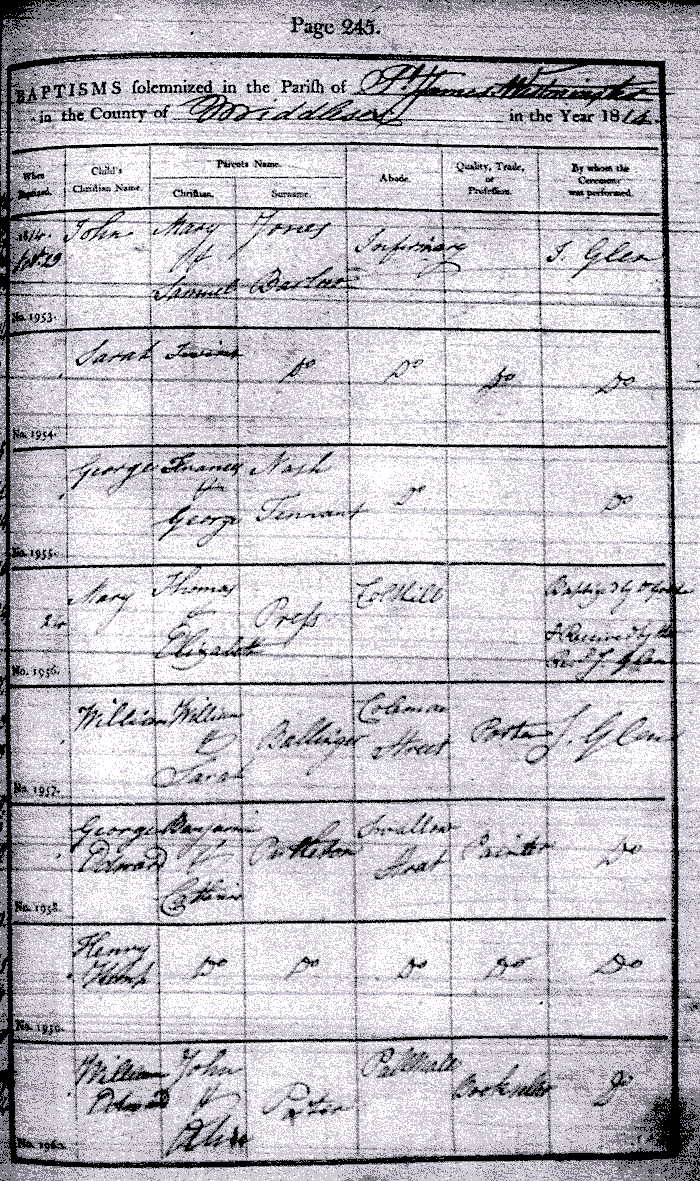 Page 245.
BAPTISMS solemnized in the Parish of St James Westminster
in the County of Middlesex in the Year 1814.
When Baptized. Child's Christian Name. Parents Name. Christian. Surname. Abode. Quality, Trade, or Profession. By whom the Ceremony was performed.
1814. John Mary Jones Infirmary J. Glen
&
Samuel
No. 1953.
Sarah Do Do Do Do
No. 1954.
George Frances Nash Do Do
&
George Tennant
No. 1955.
Mary Thomas Press
&
Elizabeth
& Received by the
Revd. J. Glen
No. 1956.
William William Ballinger Coleman Street Porter J. Glen
&
Sarah
No. 1957.
George Edward Benjamin Swallow Street Painter Do
&
No. 1958.
Henry Do Do Do Do Do
No. 1959.
William Edward John Pallmall Bookseller Do
&
No. 1960.